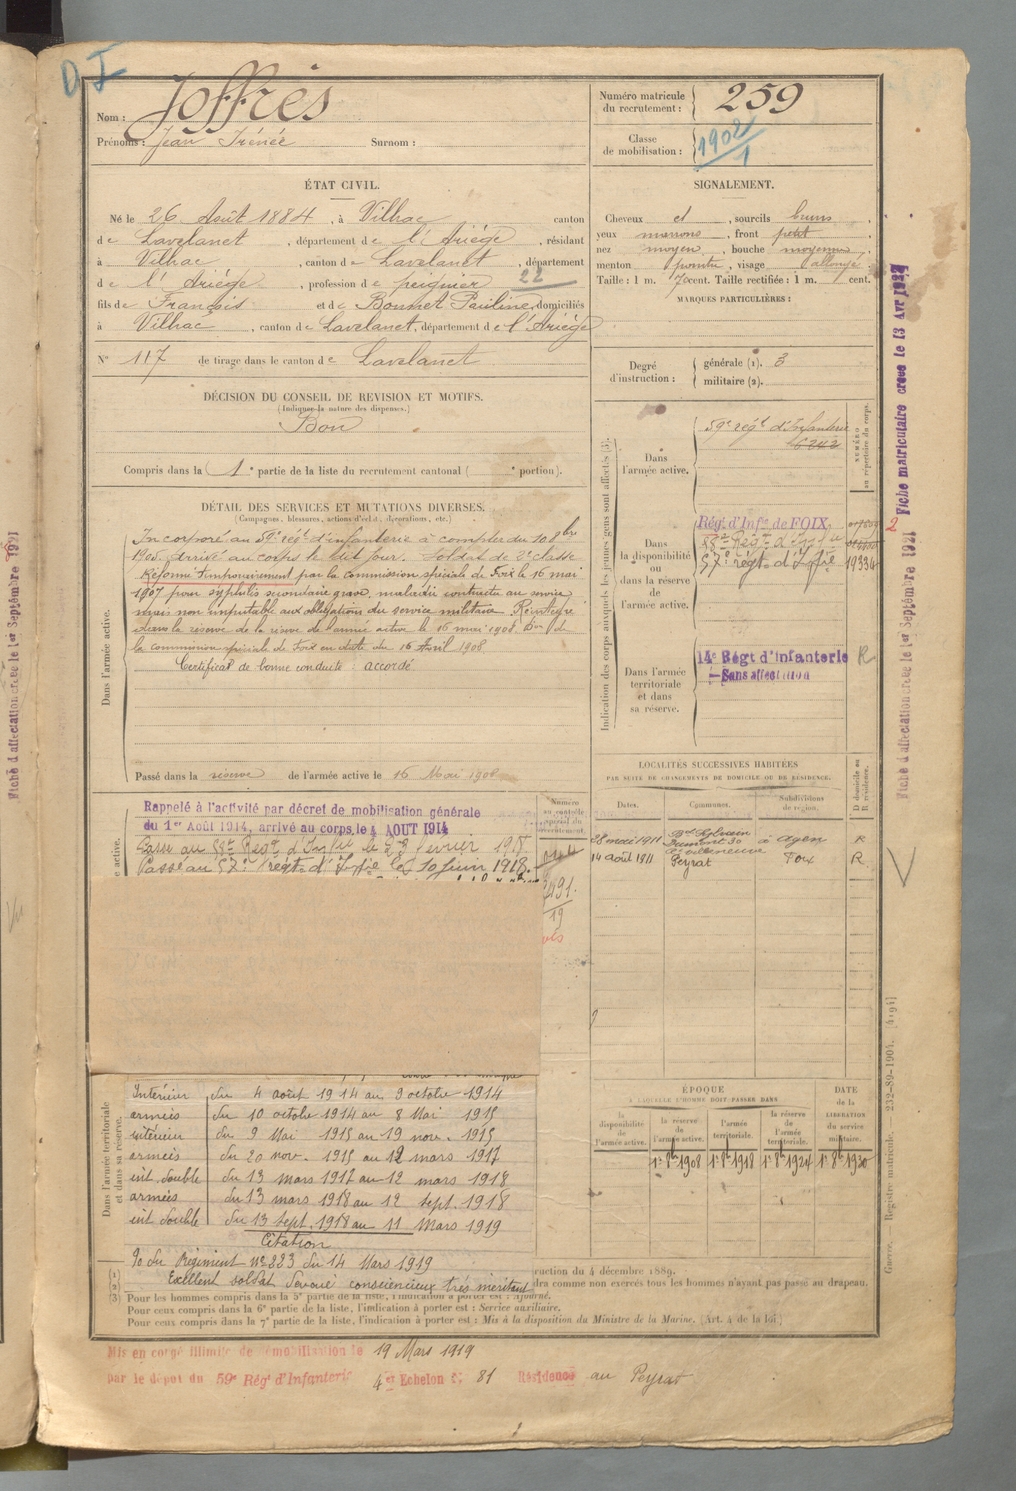 D I
Nom : Joffrès
Prénoms : Jean Irénée Surnom :
Numéro matricule du recrutement : 259
Classe de mobilisation : 1902/1
ÉTAT CIVIL.
Né le 26 Août 1884, à Vilhac canton
de Lavelanet, département de l'Ariége, résidant
à Vilhac, canton de Lavelanet, département
de l'Ariége, profession de peignier 22
fils de François et de Bonnet Pauline, domiciliés
à Vilhac, canton de Lavelanet, département de l'Ariége
N° 117 de tirage dans le canton de Lavelanet
SIGNALEMENT.
Cheveux et, sourcils bruns
yeux marrons, front petit
nez moyen, bouche moyenne
menton pointu, visage allongé
Taille : 1 m. cent. Taille rectifiée : 1 m. cent.
MARQUES PARTICULIÈRES :
Degré d'instruction : générale (1). 3
militaire (2).
DÉCISION DU CONSEIL DE REVISION ET MOTIFS.
(Indiquer la nature des dispenses.)
Bon
Compris dans la 1e partie de la liste du recrutement cantonal ( e portion).
DÉTAIL DES SERVICES ET MUTATIONS DIVERSES.
(Campagnes, blessures, actions d'éclat, décorations, etc.)
Dans l'armée active.
Incorporé au 59e rég. d'infanterie à compter du 10 8bre
1905. Arrivé au corps le dit jour. Soldat de 2e classe
Réformé temporairement par la commission spéciale de Foix le 16 mai
1907 pour syphilis secondaire grave, maladie contractée au service
mais non imputable aux obligations du service militaire. Réintégré
dans la réserve de l'armée active le 16 mai 1908
la commission spéciale de Foix en date du 16 Avril 1908
Certificat de bonne conduite : accordé
Passé dans la réserve de l'armée active le 16 Mai 1908
Indication des corps auxquels les jeunes gens sont affectés (3).
NUMÉRO au répertoire du corps.
Dans l'armée active.
59e régt d'infanterie
6242
Dans la disponibilité ou dans la réserve de l'armée active.
Rég. d'Infie de FOIX
88e Régt d'Infie
57e régt d'Infie 19334
2
Dans l'armée territoriale et dans sa réserve.
14e Régt d'infanterie R
Sans affectation
LOCALITÉS SUCCESSIVES HABITÉES
PAR SUITE DE CHANGEMENTS DE DOMICILE OU DE RÉSIDENCE.
Dates. Communes. Subdivisions de région. D domicile ou R résidence.
28 mai 1911 Bd Sylvain Dumont 30 à Agen R
Villeneuve
14 août 1911 Peyrat Foix R
Rappelé à l'activité par décret de mobilisation générale
du 1er Août 1914, arrivé au corps le 4 AOUT 1914
Passé au 88e Régt d'Infie le 23 février 1915
Passé au 57e régt d'Infie le 10 juin 1918.
Numéro au contrôle spécial du recrutement.
Dans l'armée territoriale et dans sa réserve.
Intérieur du 4 août 1914 au 9 octobre 1914
armées du 10 octobre 1914 au 8 Mai 1915
intérieur du 9 Mai 1915 au 19 nov. 1915
armées du 20 nov. 1915 au 12 mars 1917
int. double du 13 mars 1917 au 12 mars 1918
armées du 13 mars 1918 au 12 sept. 1918
int double du 13 sept. 1918 au 11 Mars 1919
Citation
du Régiment n° 223 du 14 Mars 1919
Exellent soldat dévoué consciencieux très méritant
ÉPOQUE
À LAQUELLE L'HOMME DOIT PASSER DANS
la disponibilité de l'armée active. la réserve de l'armée active. l'armée territoriale. la réserve de l'armée territoriale.
DATE de la LIBÉRATION du service militaire.
1er 8bre 1908 1er 8bre 1918 1er 8bre 1924 1er 8bre 1930
(1) ruction du 4 décembre 1889.
(2) dra comme non exercés tous les hommes n'ayant pas passé au drapeau.
(3) Pour les hommes compris dans la 5e partie de la liste, l'indication à porter est : Ajourné.
Pour ceux compris dans la 6e partie de la liste, l'indication à porter est : Service auxiliaire.
Pour ceux compris dans la 7e partie de la liste, l'indication à porter est : Mis à la disposition du Ministre de la Marine. (Art. 4 de la loi.)
Mis en congé illimité de démobilisation le 19 Mars 1919
par le dépôt du 59e Rég d'Infanterie 4er Echelon N° 81 Résidence au Peyrat
Guerre. — Registre matricule. — 232-89-1904. [4194]
Fiche d'affectation créée le 1er Septembre 1921
Fiche matriculaire créée le 13 Avr
Fiche d'affectation créée le 1er Septembre 1921
Vu